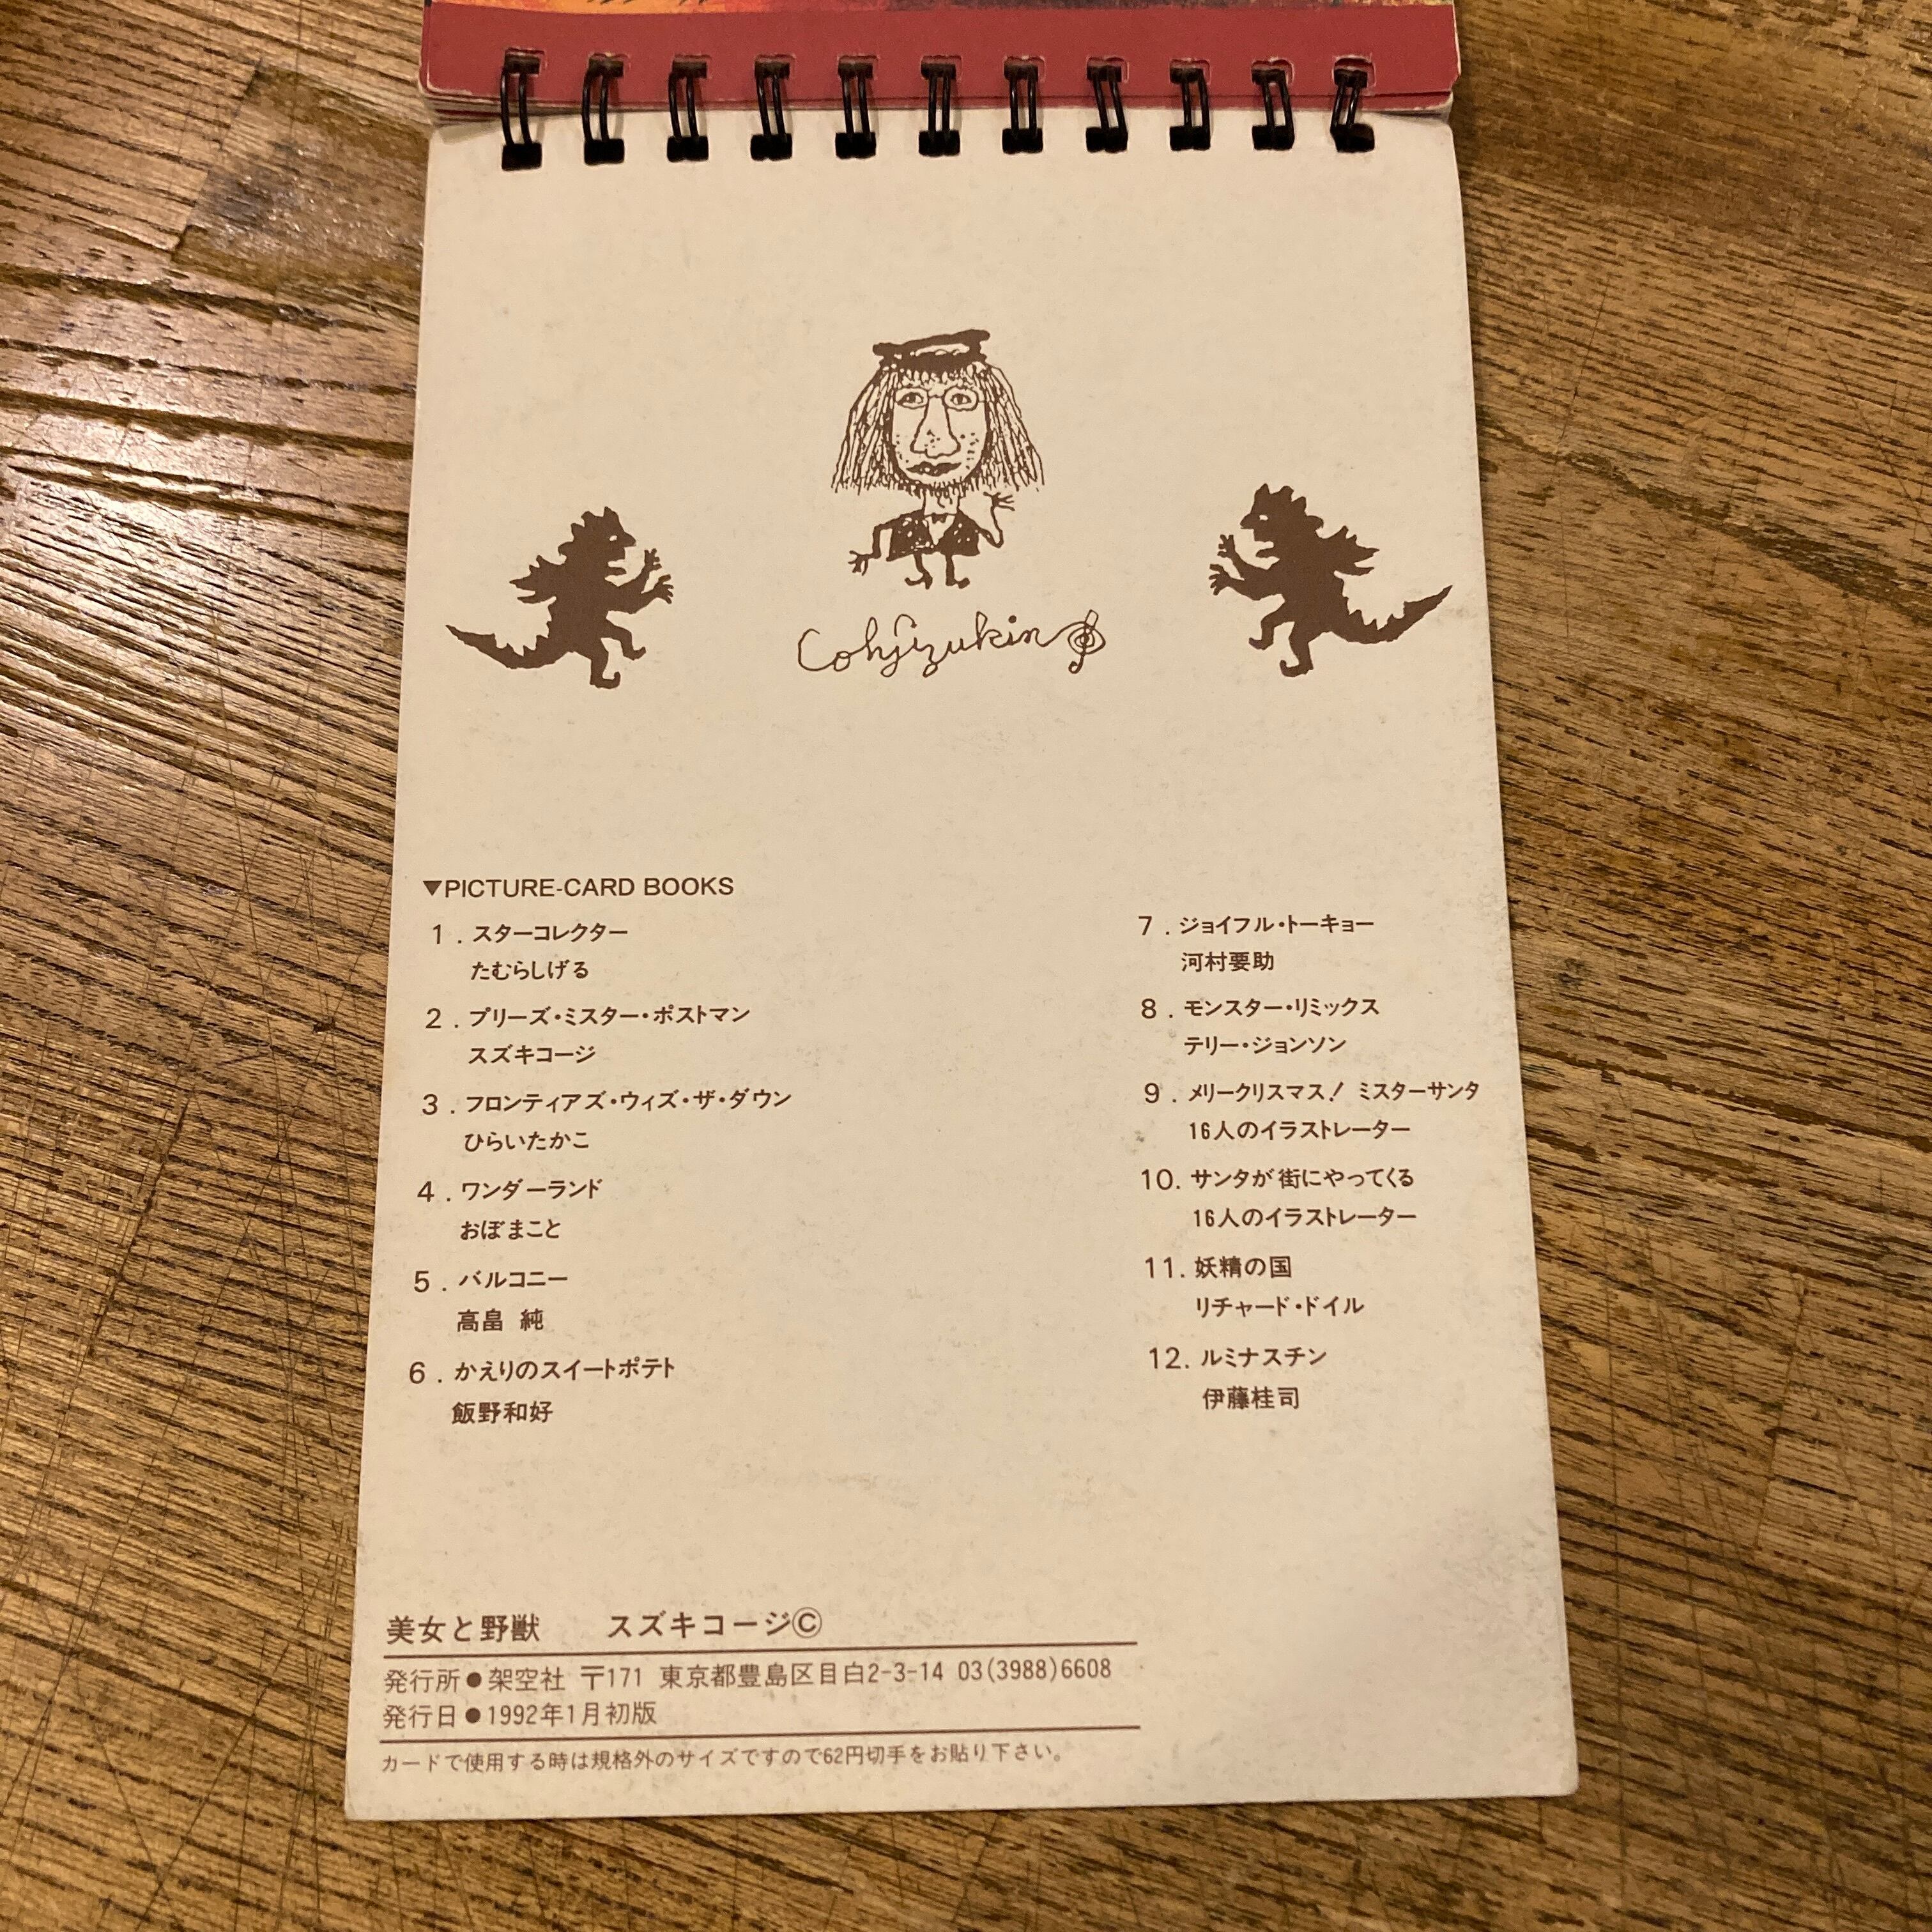 Cohjizukin
▼PICTURE-CARD BOOKS
1.スターコレクター
たむらしげる
2.プリーズ・ミスター・ポストマン
スズキコージ
3.フロンティアズ・ウィズ・ザ・ダウン
ひらいたかこ
4.ワンダーランド
おぼまこと
5.バルコニー
高畠 純
6.かえりのスイートポテト
飯野和好
7.ジョイフル・トーキョー
河村要助
8.モンスター・リミックス
テリー・ジョンソン
9.メリークリスマス! ミスターサンタ
16人のイラストレーター
10.サンタが街にやってくる
16人のイラストレーター
11.妖精の国
リチャード・ドイル
12.ルミナスチン
伊藤桂司
美女と野獣 スズキコージ©
発行所●架空社 〒171 東京都豊島区目白2-3-14 03(3988)6608
発行日●1992年1月初版
カードで使用する時は規格外のサイズですので62円切手をお貼り下さい。